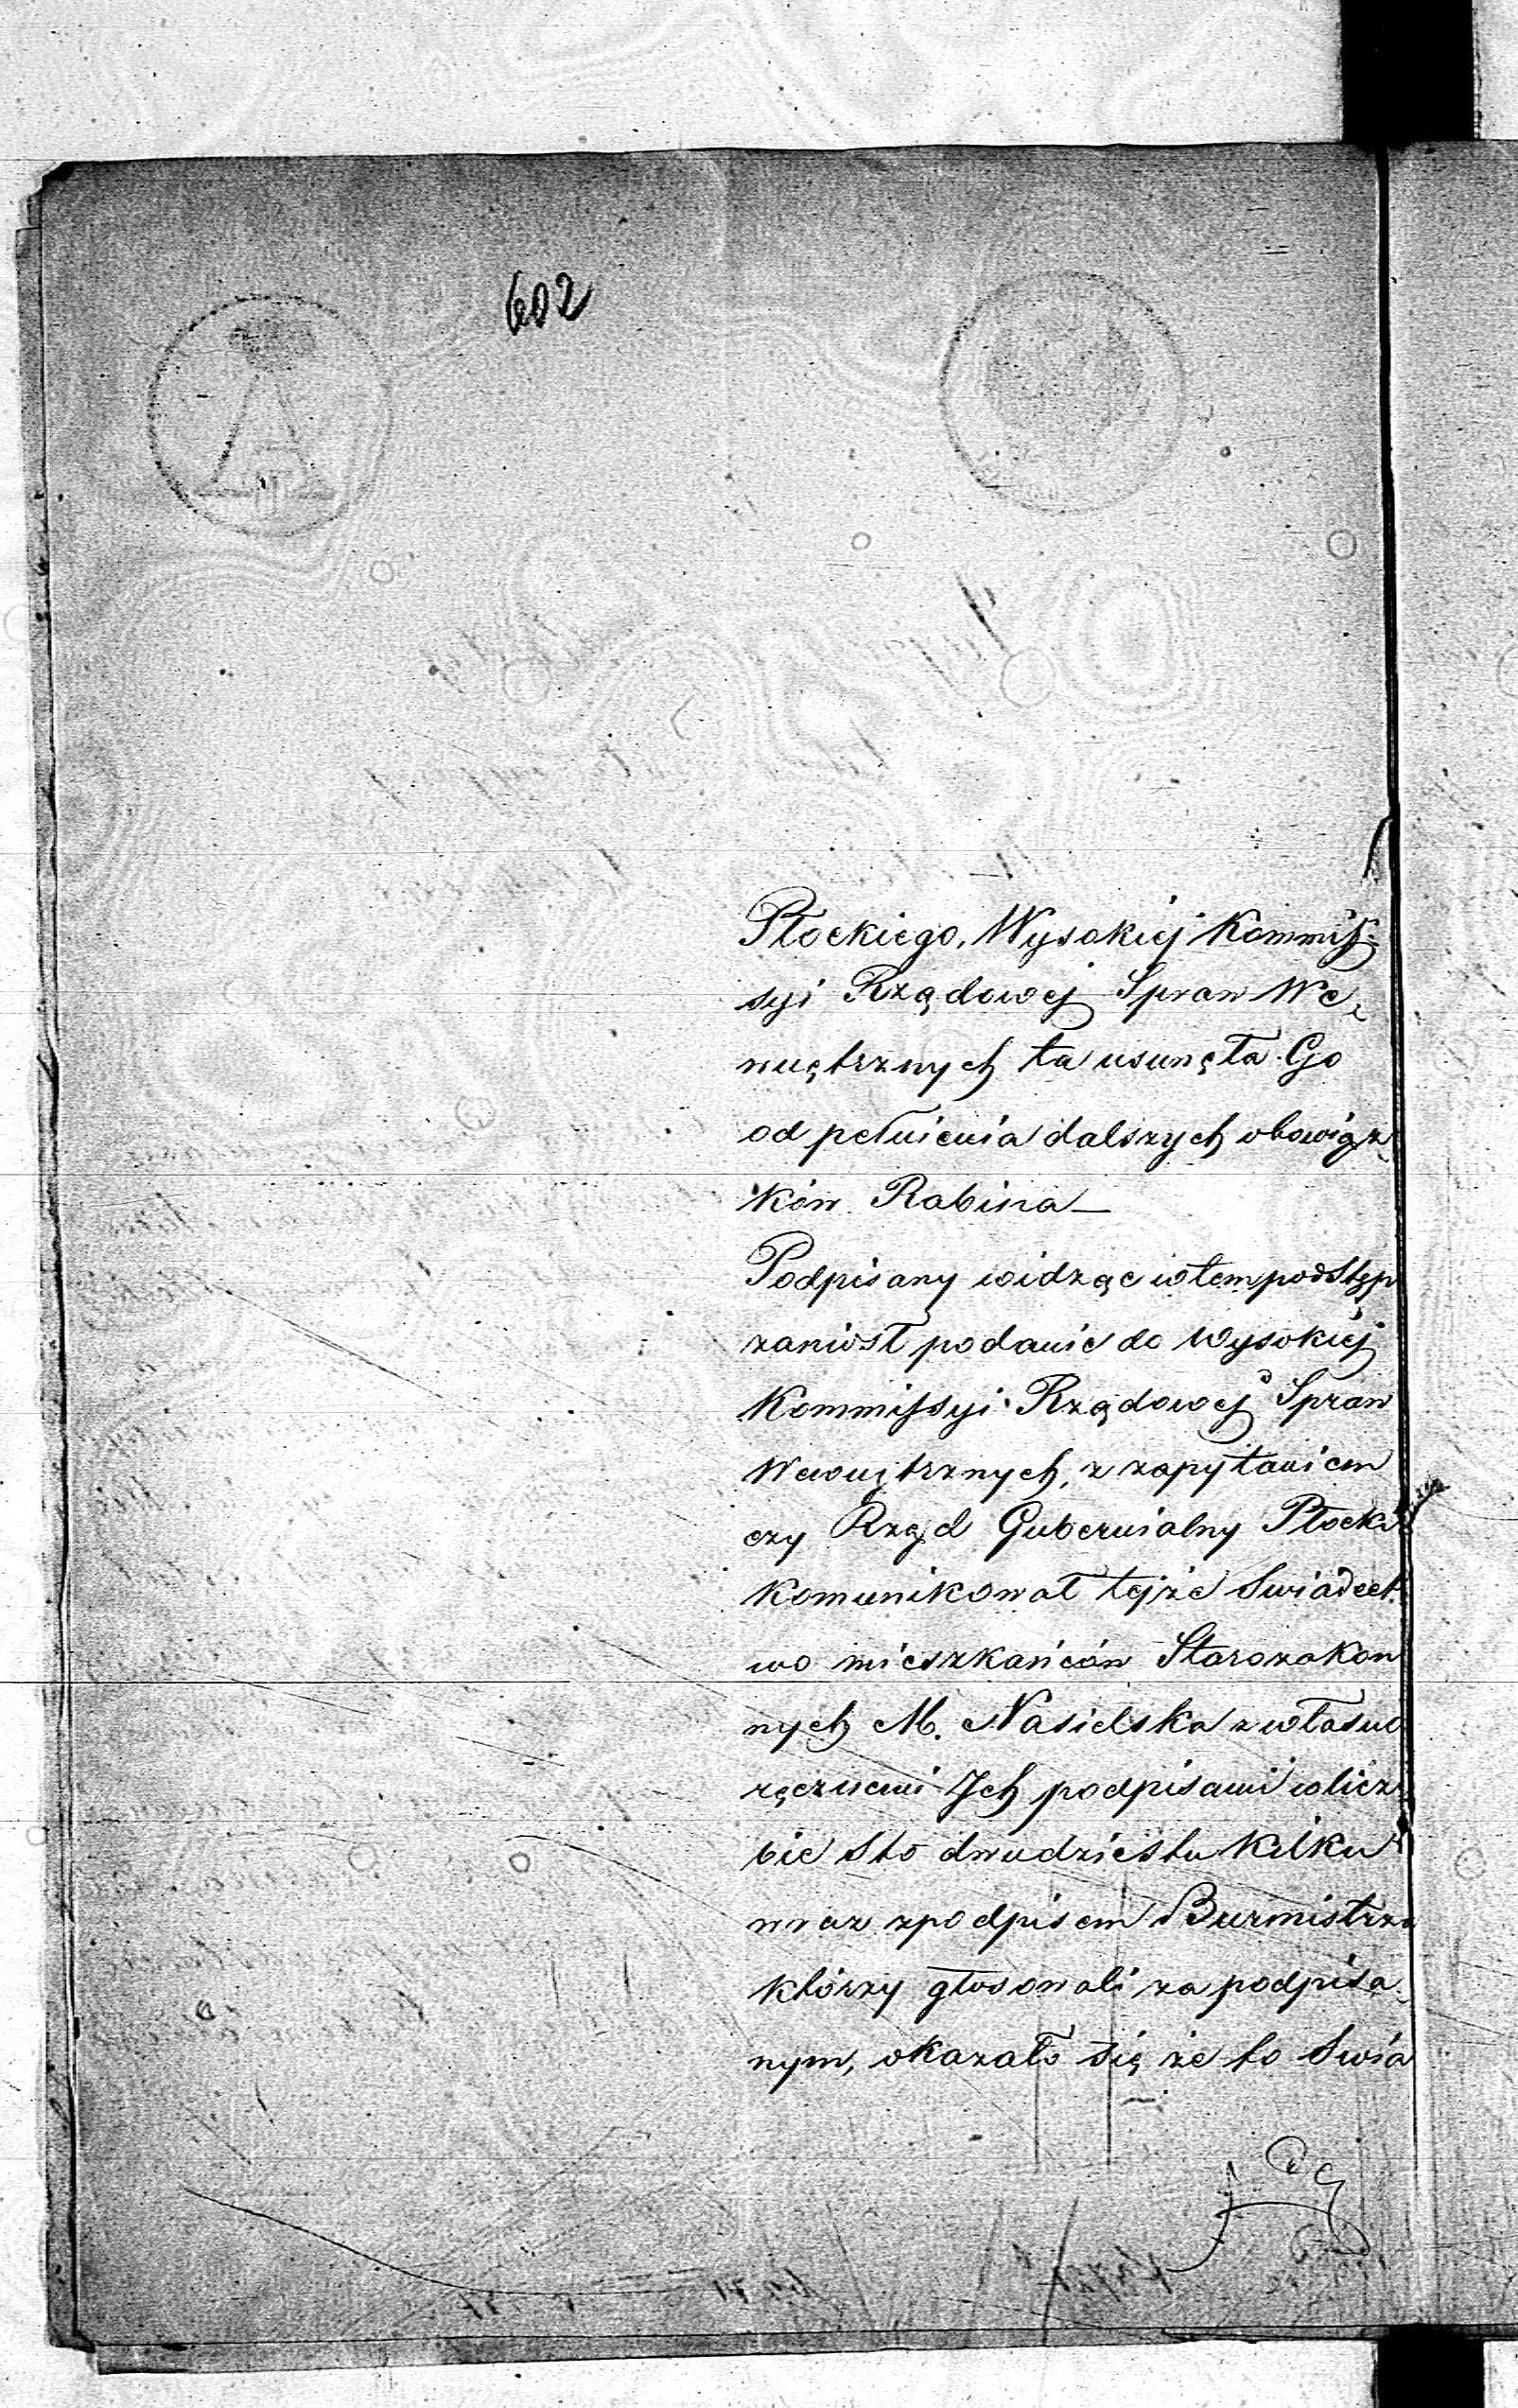 602
Płockiego, Wysokiej Kommis-
syi Rządowej Spraw We-
wnętrznych ta usunęła Go
od pełnienia dalszych obowiąz-
ków Rabina—
Podpisany widząc wtem podstęp
zaniósł podanie do Wysokiej
Kommissyi Rządowej Spraw
Wewnętrznych, z zapytaniem
czy Rząd Gubernialny Płocki
komunikował tejże Swiadect
wo mieszkańców Starozakon
nych M. Nasielska z własno
ręcznemi Ich podpisami wlicz
bie sto dwudziestu kilku
wraz zpodpisem Burmistrza
którzy głosowali za podpisa-
nym, okazało się że to Swia